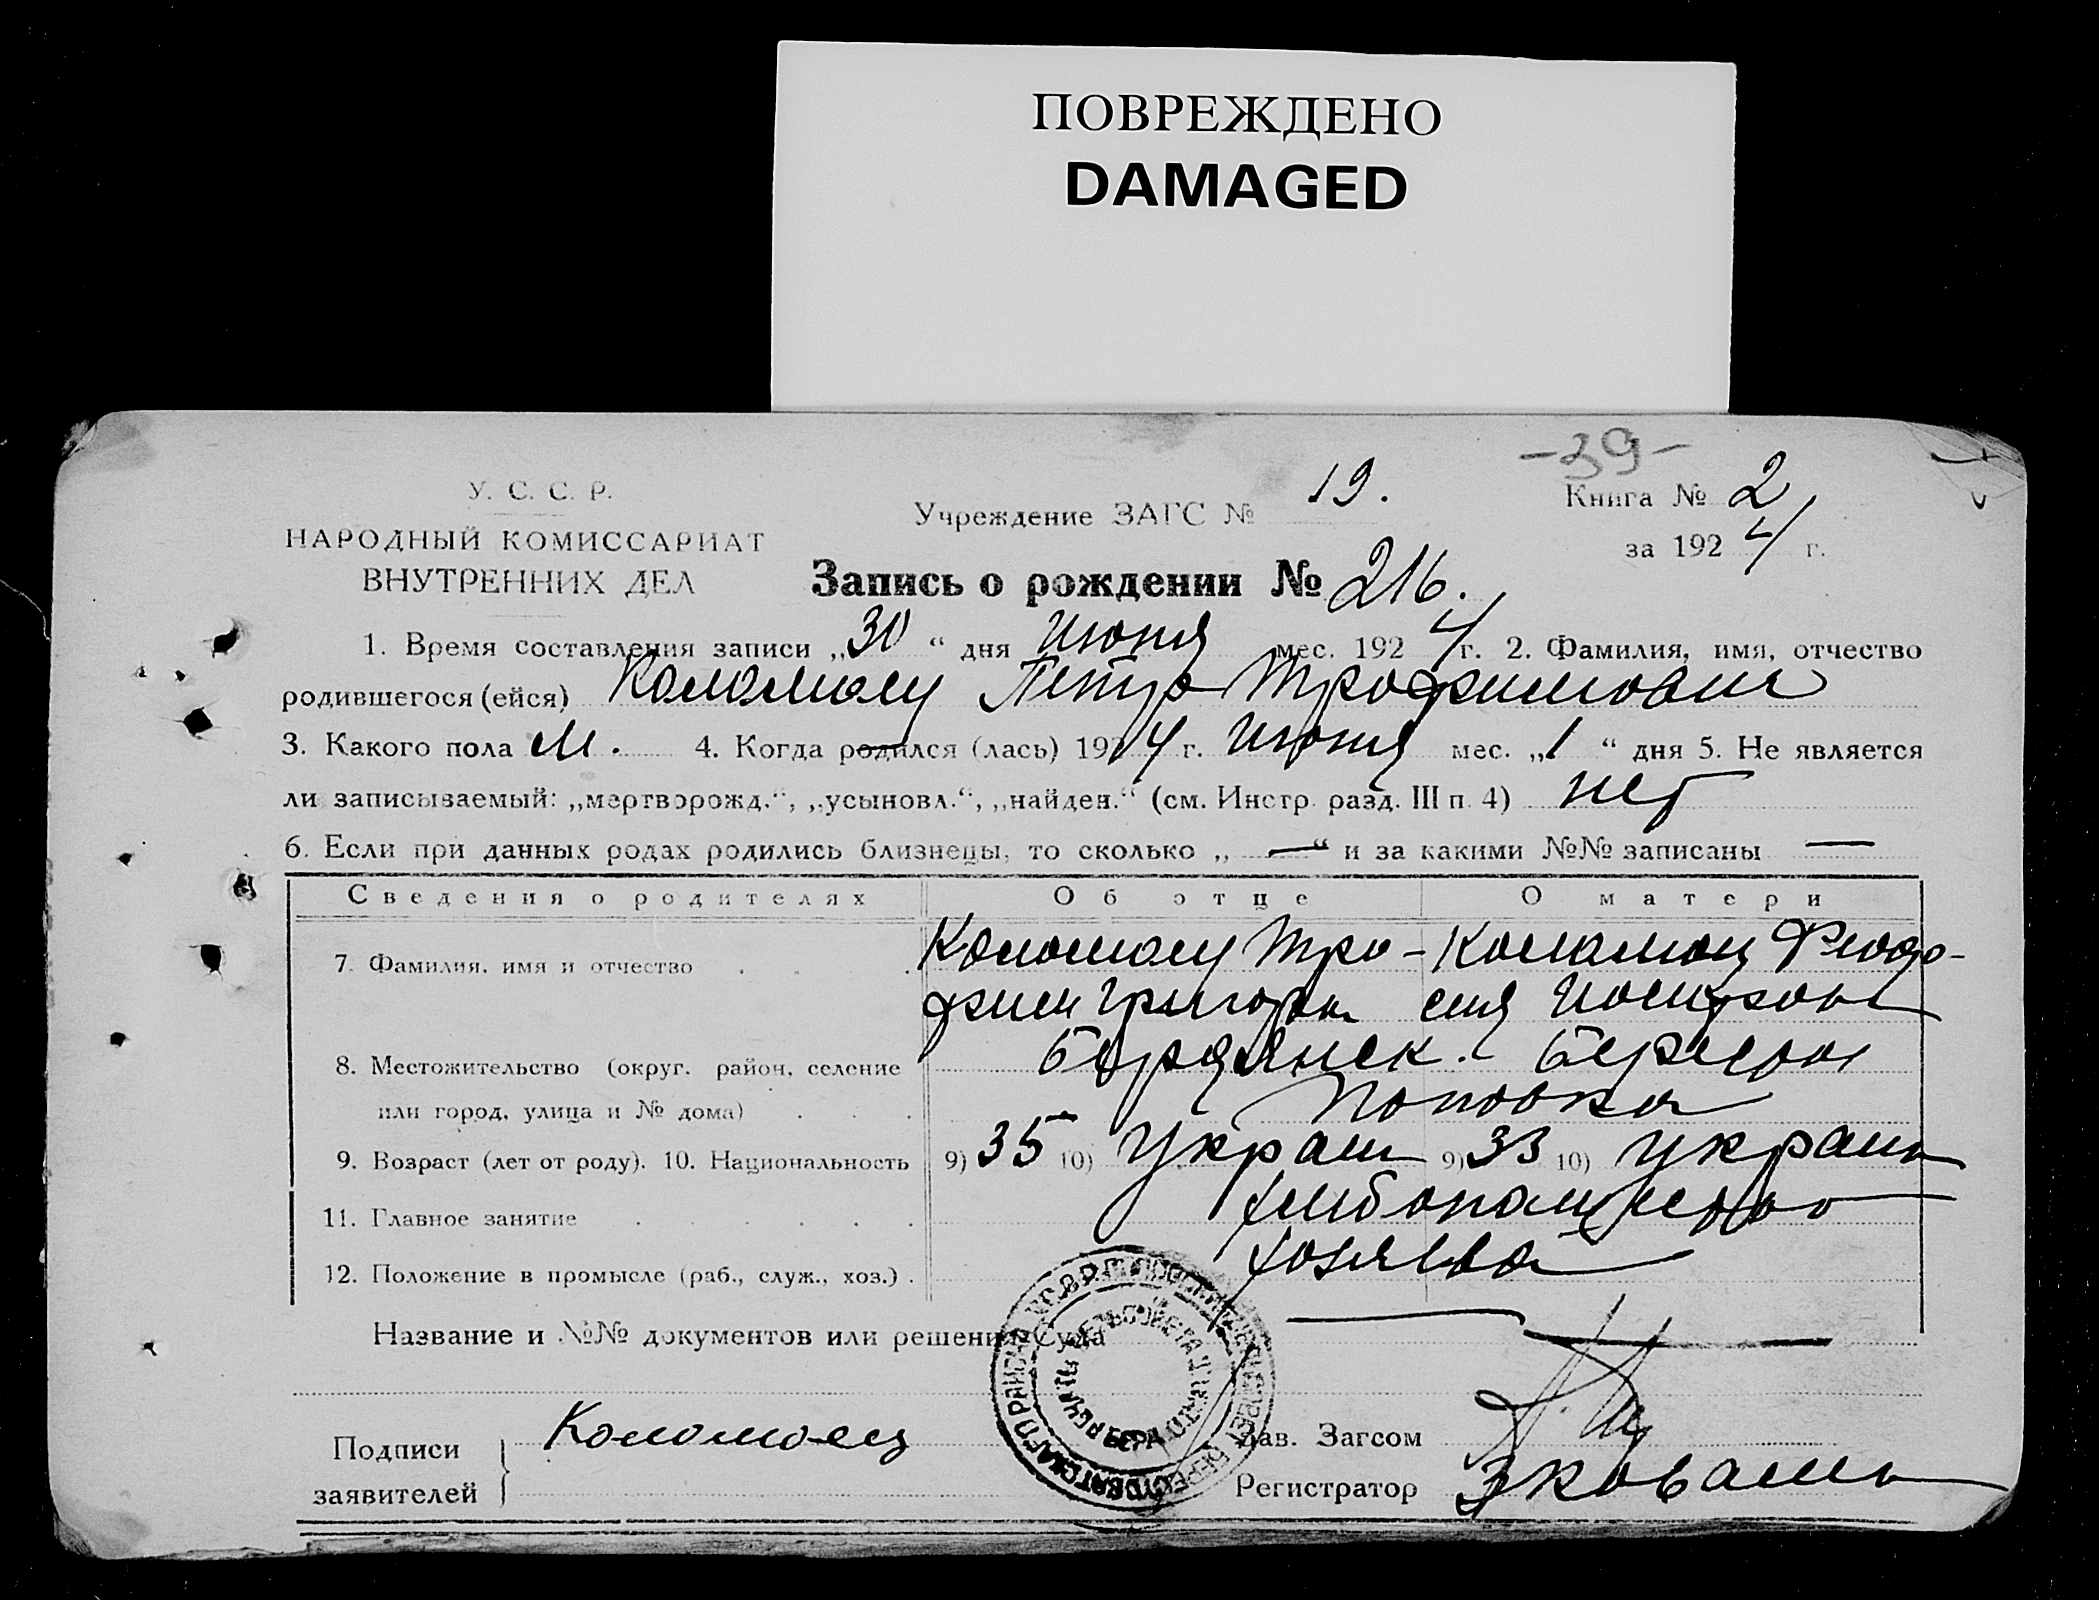 ПОВРЕЖДЕНО
DAMAGED
-39-
У. С. С. Р.
НАРОДНЫЙ КОМИССАРИАТ
ВНУТРЕННИХ ДЕЛ
Учреждение ЗАГС № 19.
Книга № 2
за 1924 г.
Запись о рождении № 216.
1. Время составления записи „30“ дня Июня мес. 1924 г. 2. Фамилия, имя, отчество
родившегося (ейся) Коломиец Петро Трофимович
3. Какого пола М. 4. Когда родился (лась) 1924 г. Июня мес. „1“ дня 5. Не является
ли записываемый: „мертворожд.“, „усыновл.“, „найден.“ (см. Инстр. разд. III п. 4) нет
6. Если при данных родах родились близнецы, то сколько „—“ и за какими №№ записаны —
Сведения о родителях Об отце О матери
7. Фамилия, имя и отчество Коломоец Тро- Коломоец Феодо-
фим Григорьев сия Иосифовн
8. Местожительство (округ. район, селение Бердянск. Берестов
или город, улица и № дома) Поповка
9. Возраст (лет от роду). 10. Национальность 9) 35 10) Украин 9) 33 10) Украин
11. Главное занятие хлебопашество
12. Положение в промысле (раб., служ., хоз.) хозяева
Название и №№ документов или решения Суда
Подписи
заявителей
Коломоец
Зав. Загсом
Регистратор